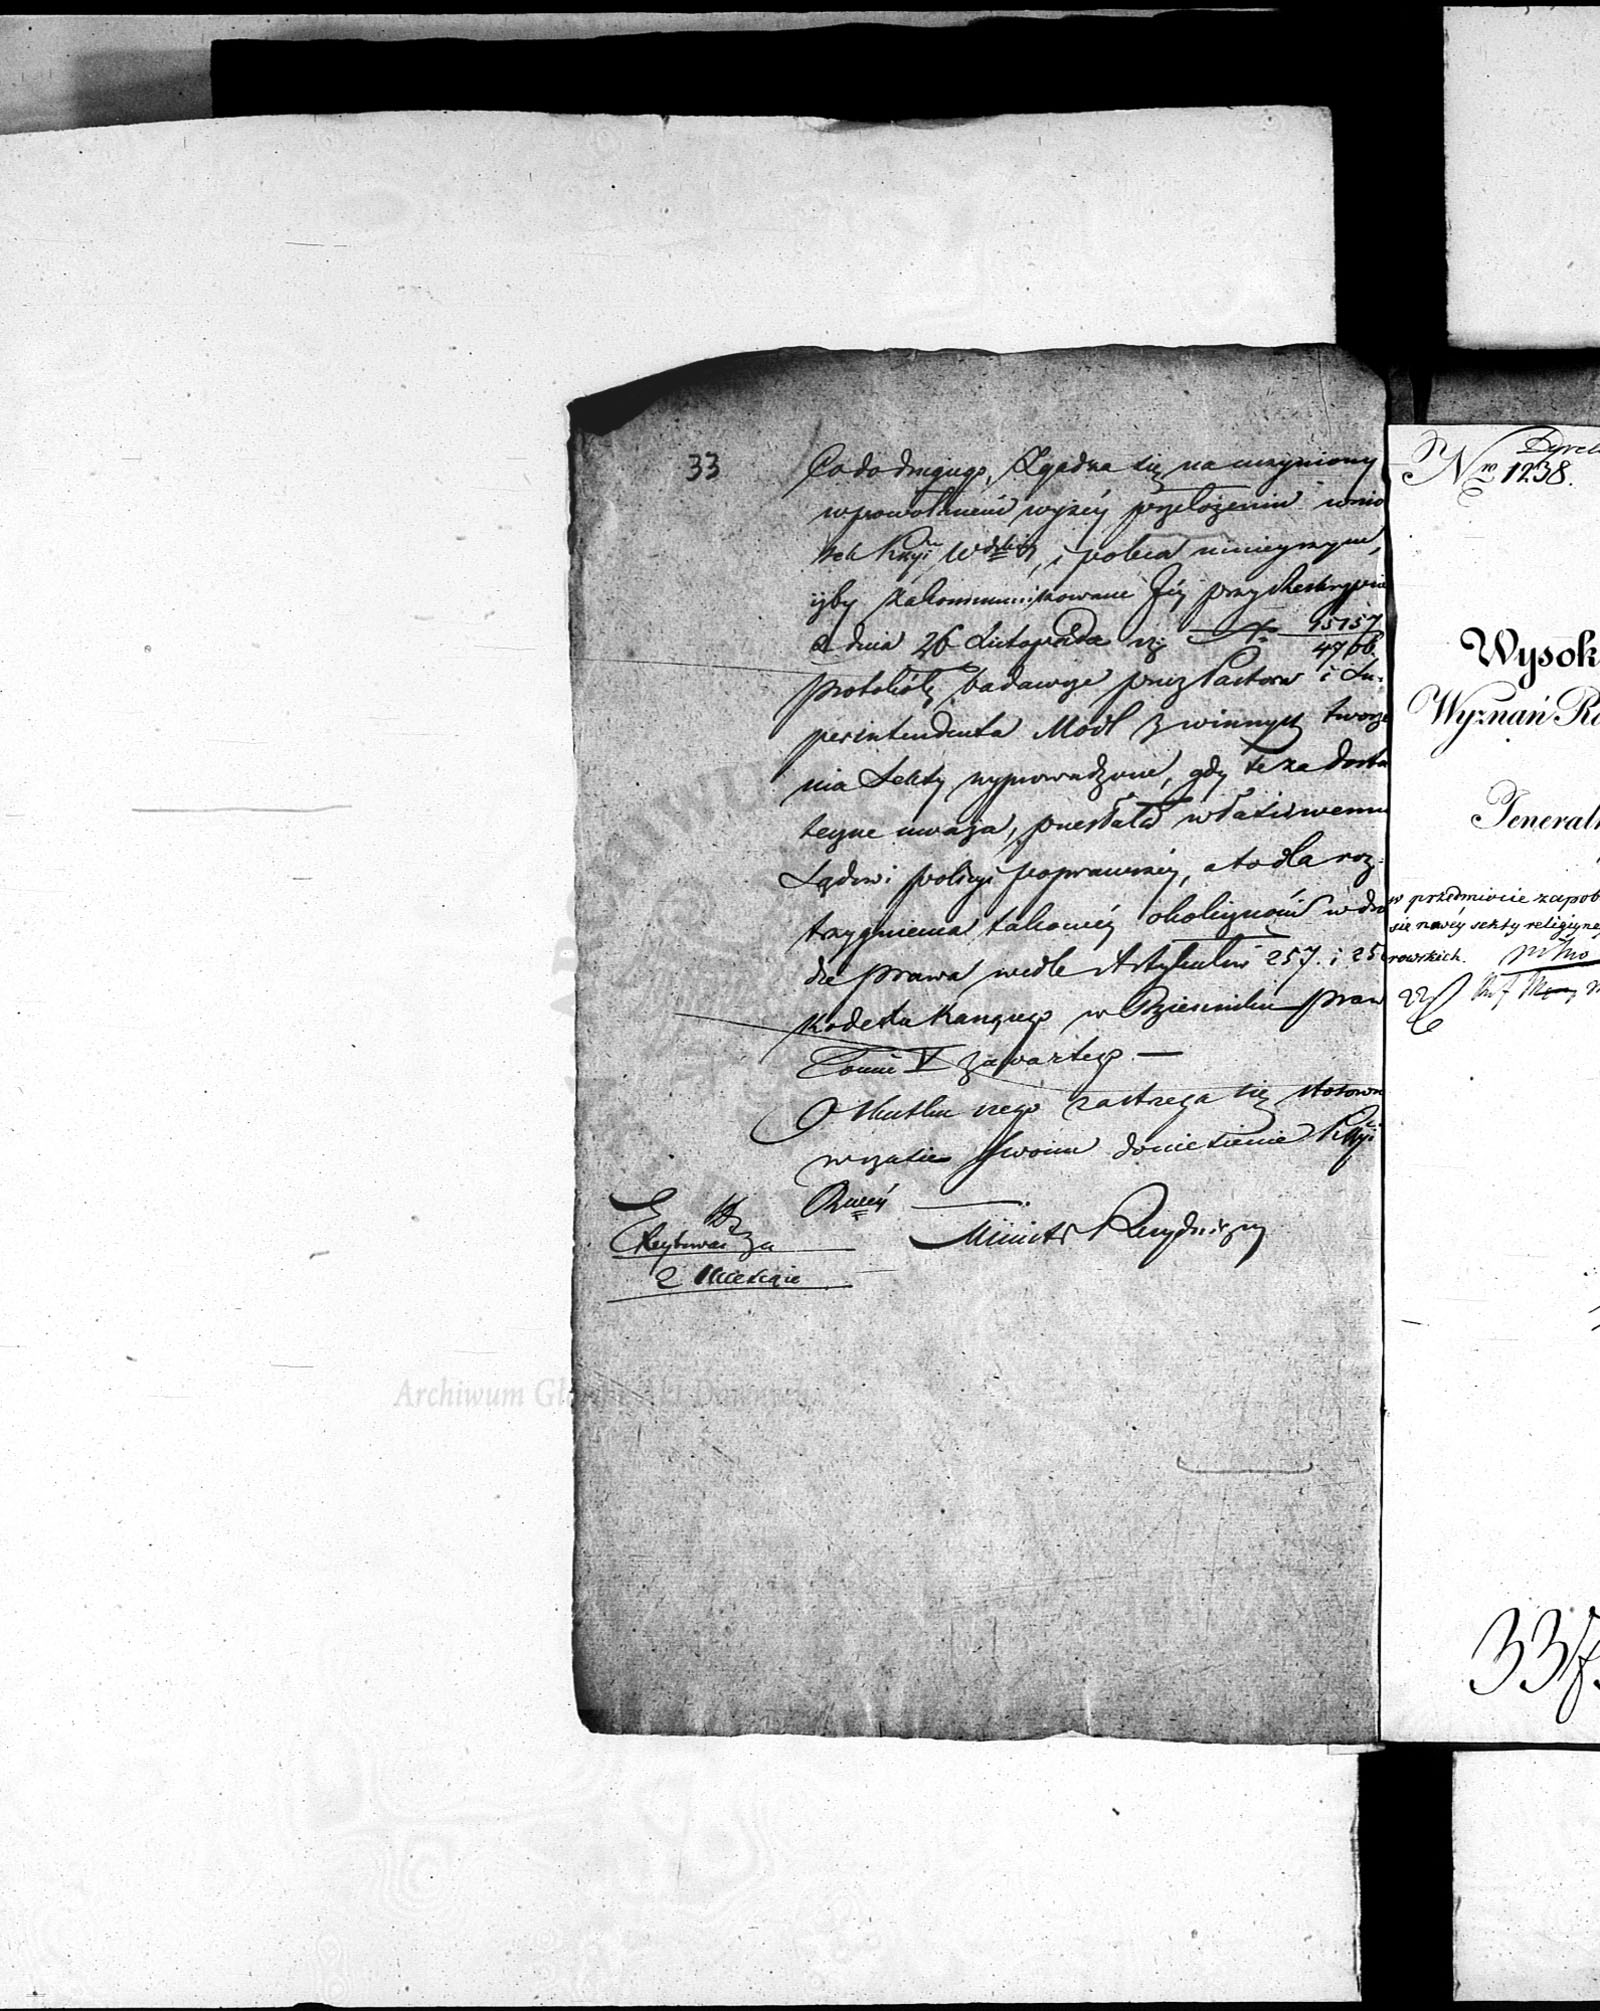 33
Co do drugiego, Zgadza się na uczyniony
w powołaniem wyżéy przełożeniu wnio
sek Kommyi Wdzkiéy, i poleca ninieyszym,
iżby zakommunikowane Jéy przy Reskrypcie
z dnia 26 Listopada r. z. N. 15157/4766.
protokóły badawcze przez Pastora i Su-
perintendenta Modl z winnych tworze
nia Sekty wyprowadzone, gdy te za dosta
teczne uważa, przesłała właściwemu
Sądowi policyi poprawczéy, a to dla roz-
trzygnienia takowéy okoliczności w dro
dze prawa wedle Artykułów 257. i 25
Kodexu Karzącego w Dzienniku praw
Tomie V zawartego —
O skutku czego zastrzega się stosowne
w czasie swoim doniesienie Kommyi
Rządowéy —
Minister Prezyduiący
Excytować za
2 Miesiące
Archiwum Główne Akt Dawnych
Dyrek
Nro 1238.
Wysok
Wyznań R
Jeneral
w przedmiocie zapob
się nowéy sekty religiyne
rowskich.
337